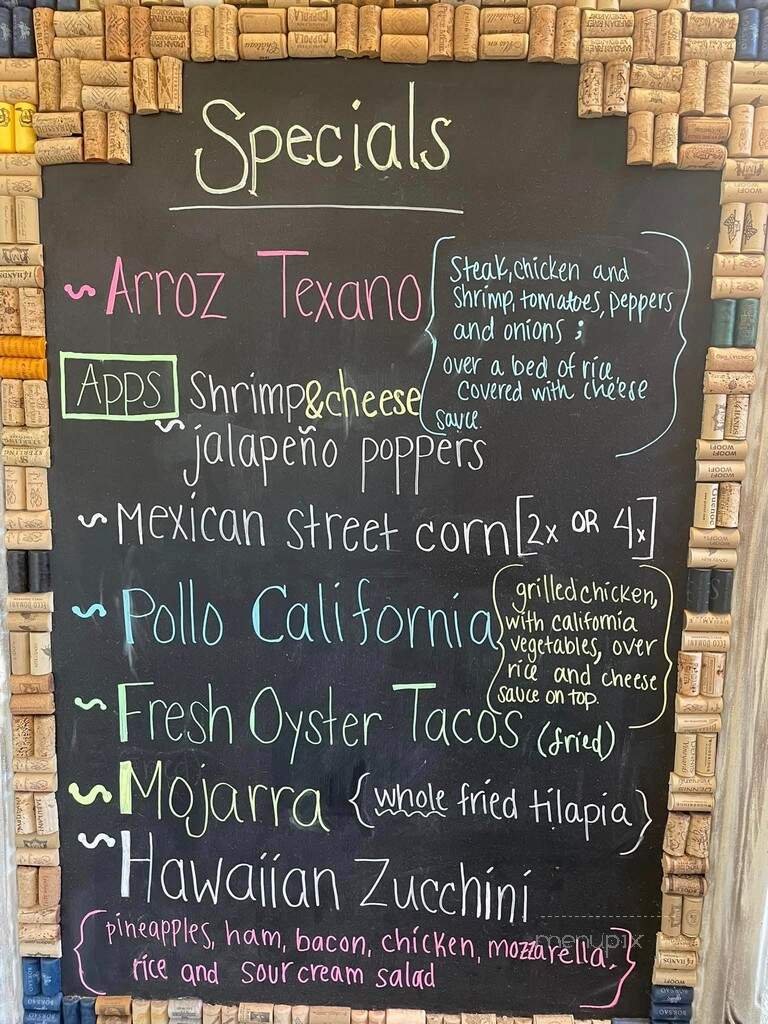 Specials
~ Arroz Texano
{ Steak, chicken and
shrimp, tomatoes, peppers
and onions ;
over a bed of rice
covered with cheese
sauce. }
Apps shrimp & cheese
~ jalapeño poppers
~ Mexican street corn [2x OR 4x]
~ Pollo California
{ grilled chicken,
with california
vegetables, over
rice and cheese
sauce on top. }
~ Fresh Oyster Tacos (fried)
~ Mojarra {whole fried tilapia}
~ Hawaiian Zucchini
{ pineapples, ham, bacon, chicken, mozzarella,
rice and sour cream salad }
menupix